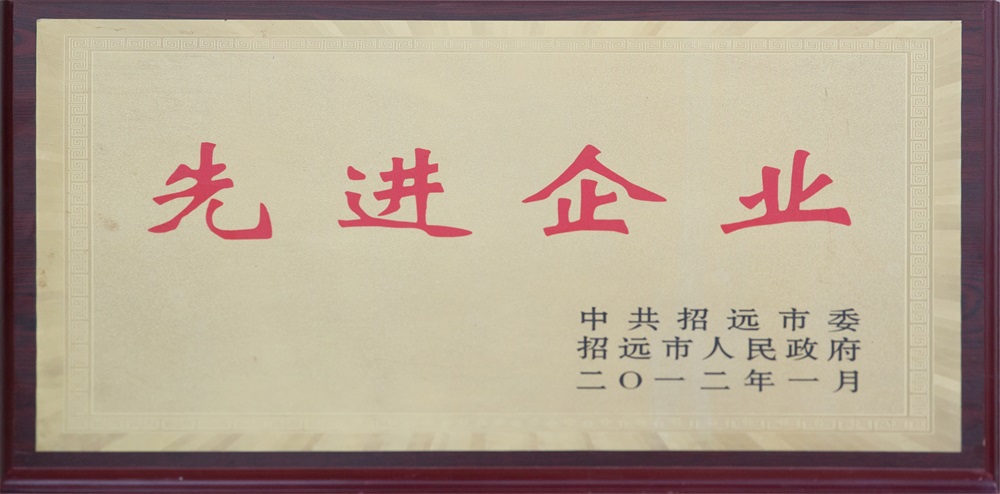 先进企业
中共招远市委
招远市人民政府
二〇一二年一月